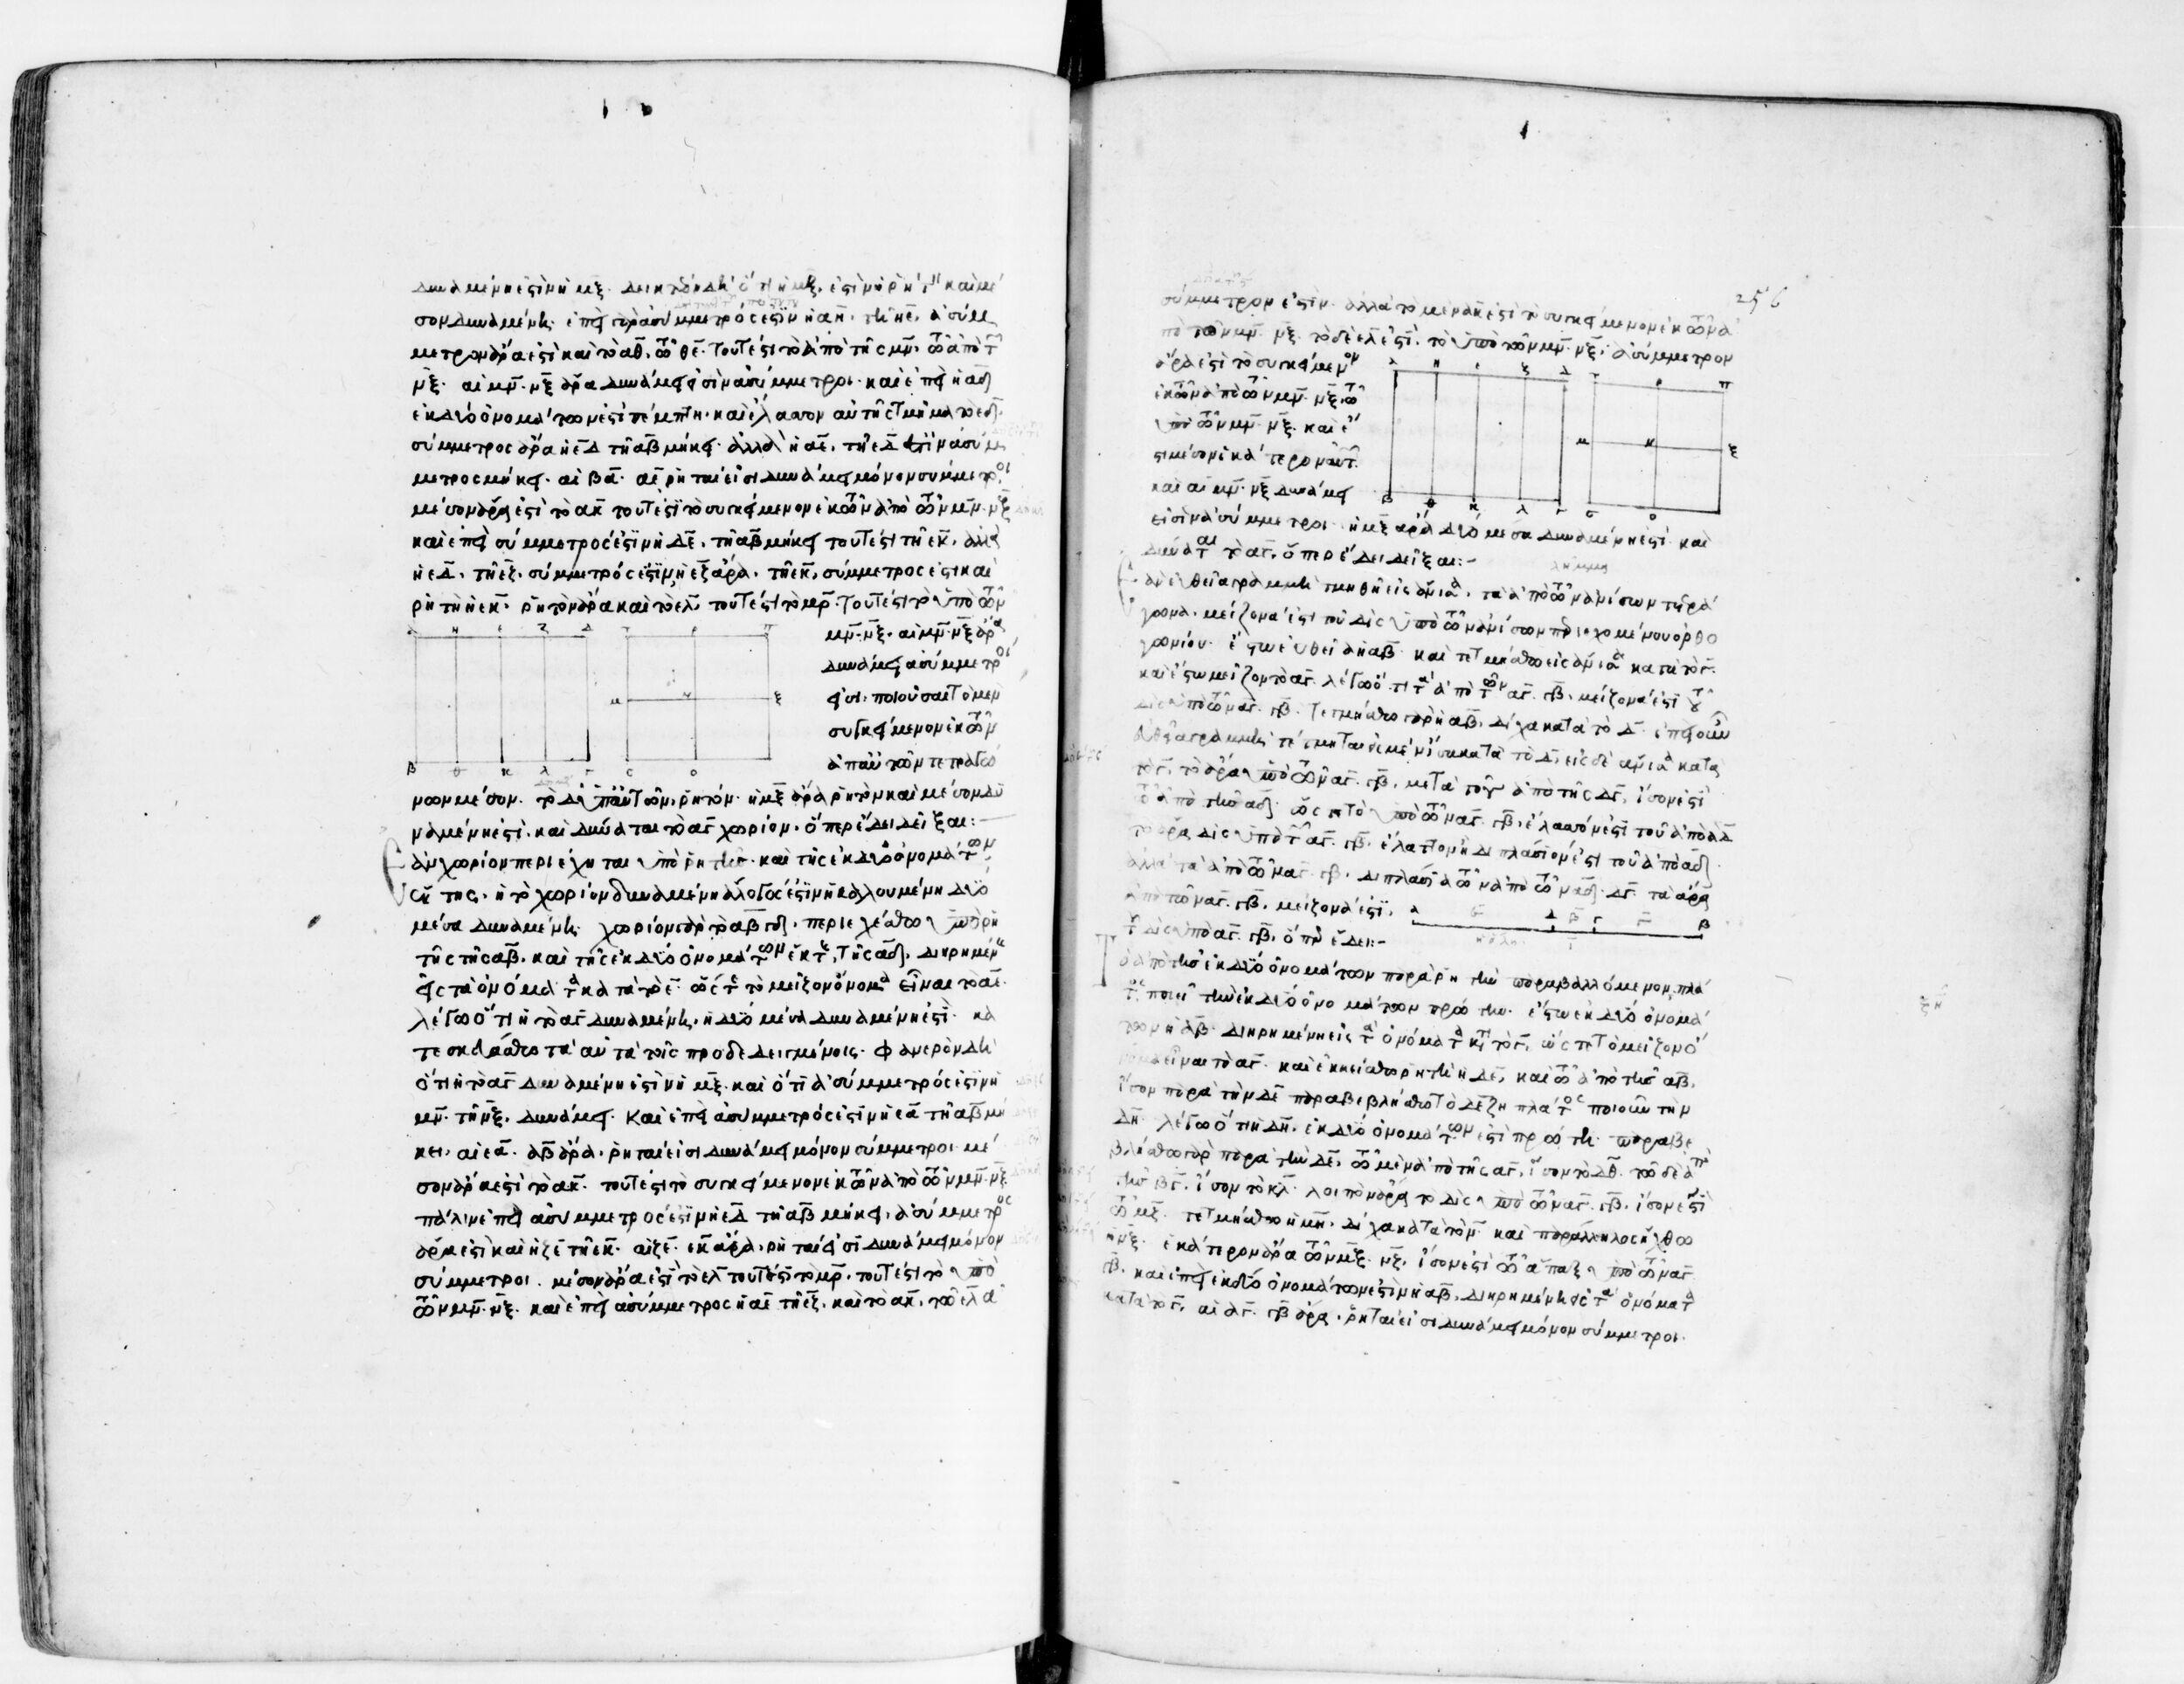 δυναμένη ἐστὶν ἡ μξ. δεικτέον δὴ ὅτι ἡ μξ, ἐστὶν ἡ ῥητὸν καὶ μέ
σον δυναμένη. ἐπεὶ γὰρ ἀσύμμετρός ἐστιν ἡ αη, τῆ ηε, ἀσύμ
μετρον ἄρα ἐστὶ καὶ τὸ αθ, τῶ θε. τουτέστι τὸ ἀπὸ τῆς μν, τῶ ἀπὸ τῆς
νξ. αἱ μν. νξ ἄρα δυνάμει εἰσὶν ἀσύμμετροι. καὶ ἐπεὶ ἡ αδ
ἐκ δύο ὀνομάτων ἐστὶ πέμπτη. καὶ ἔλασσον αὐτῆς τμῆμα τὸ εδ.
σύμμετρος ἄρα ἡ εδ τῆ αβ μήκει. ἀλλὰ ἡ αε, τῆ εδ ἐστὶν ἀσύμ
μετρος μήκει. αἱ βα. αε ῥηταί εἰσι δυνάμει μόνον σύμμετροι
μέσον ἄρα ἐστὶ τὸ ακ τουτέστι τὸ συγκείμενον ἐκ τῶν ἀπὸ τῶν μν. νξ
καὶ ἐπεὶ σύμμετρός ἐστιν ἡ δε, τῆ αβ μήκει τουτέστι τῆ εκ, ἀλλὰ
ἡ εδ, τῆ εζ, σύμμετρός ἐστιν ἡ εζ ἄρα, τῆ εκ, σύμμετρος ἐστι καὶ
ῥητὴ ἡ εκ. ῥητὸν ἄρα καὶ τὸ ελ τουτέστι τὸ μρ. τουτέστι τὸ ὑπὸ τῶν
μν. νξ. αἱ μν. νξ ἄρα
δυνάμει ἀσύμμετροί
εἰσι. ποιοῦσαι τὸ μὲν
συγκείμενον ἐκ τῶν
ἀπ' αὐτῶν τετραγώ
νων μέσον. τὸ δ' ὑπ' αὐτῶν, ῥητόν. ἡ μξ ἄρα ῥητὸν καὶ μέσον δυ
ναμένη ἐστί. καὶ δύναται τὸ αγ χωρίον. ὅπερ ἔδει δεῖξαι:
ἐὰν χωρίον περιέχηται ὑπὸ ῥητῆς. καὶ τῆς ἐκ δύο ὀνομάτων
ἕκτης. ἡ τὸ χωρίον δυναμένη ἄλογός ἐστιν ἡ καλουμένη δύο
μέσα δυναμένη. χωρίον γὰρ τὸ αβγδ. περιεχέσθω ὑπὸ ῥη
τῆς τῆς αβ. καὶ τῆς ἐκ δύο ὀνομάτων ἕκτης, τῆς αδ. διῃρημένης
εἰς τὰ ὀνόματα κατὰ τὸ ε. ὥστε τὸ μεῖζον ὄνομα εἶναι τὸ αε.
λέγω ὅτι ἡ τὸ αγ δυναμένη, ἡ δύο μέσα δυναμένη ἐστί. κα
τεσκευάσθω τὰ αὐτὰ τοῖς προδεδειγμένοις. φανερὸν δὴ
ὅτι ἡ τὸ αγ δυναμένη ἐστὶν ἡ μξ. καὶ ὅτι ἀσύμμετρός ἐστιν ἡ
μν. τῆ νξ, δυνάμει. καὶ ἐπεὶ ἀσύμμετρός ἐστιν ἡ εα τῆ αβ μή
κει. αἱ εα. αβ ἄρα. ῥηταί εἰσι δυνάμει μόνον σύμμετροι μέ
σον ἄρα ἐστὶ τὸ ακ. τουτέστι τὸ συγκείμενον ἐκ τῶν ἀπὸ τῶν μν. νξ
πάλιν ἐπεὶ ἀσύμμετρός ἐστιν ἡ εδ τῆ αβ μήκει. ἀσύμμετρος
ἄρα ἐστὶ καὶ ἡ ζε τῆ εκ. αἱ ζε. εκ ἄρα. ῥηταί εἰσι δυνάμει μόνον
σύμμετροι. μέσον ἄρα ἐστὶ τὸ ελ τουτέστι τὸ μρ. τουτέστι τὸ ὑπὸ
τῶν μν. νξ. καὶ ἐπεὶ ἀσύμμετρος ἡ αε τῆ εζ. καὶ τὸ ακ. τῶ ελ ἀ
256
σύμμετρόν ἐστιν. ἀλλὰ τὸ μὲν ακ ἐστὶ τὸ συγκείμενον ἐκ τῶν ἀ
πὸ τῶν μν. νξ. τὸ δὲ ελ ἐστὶ. τὸ ὑπὸ τῶν μν. νξ. ἀσύμμετρον
ἄρα ἐστὶ τὸ συγκείμενον
ἐκ τῶν ἀπὸ τῶν μν. νξ. τῶ
ὑπὸ τῶν μν. νξ. καὶ ἔ
στι μέσον ἑκάτερον αὐτῶν.
καὶ αἱ μν. νξ δυνάμει
εἰσὶν ἀσύμμετροι. ἡ μξ ἄρα δύο μέσα δυναμένη ἐστί. καὶ
δύναται τὸ αγ. ὅπερ ἔδει δεῖξαι:-
λῆμμα
ἐὰν εὐθεῖα γραμμὴ τμηθῆ εἰς ἄνισα, τὰ ἀπὸ τῶν ἀνίσων τετρά
γωνα. μείζονά ἐστι τοῦ δὶς ὑπὸ τῶν ἀνίσων περιεχομένου ὀρθο
γωνίου. ἔστω εὐθεῖα ἡ αβ. καὶ τετμήσθω εἰς ἄνισα κατὰ τὸ γ.
καὶ ἔστω μεῖζον τὸ αγ. λέγω ὅτι τὰ ἀπὸ τῶν αγ. γβ. μείζονά ἐστι τοῦ
δὶς ὑπὸ τῶν αγ. γβ. τετμήσθω γὰρ ἡ αβ. δίχα κατὰ τὸ δ. ἐπεὶ οὖν
εὐθεῖα γραμμὴ τέτμηται εἰς μὲν ἴσα κατὰ τὸ δ, εἰς δὲ ἄνισα κατὰ
τὸ γ. τὸ ἄρα ὑπὸ τῶν αγ. γβ, μετὰ τοῦ ἀπὸ τῆς δγ, ἴσον ἐστὶ
τῶ ἀπὸ τῆς αδ. ὥστε τὸ ὑπὸ τῶν αγ. γβ, ἔλασσόν ἐστι τοῦ ἀπὸ αδ
τὸ ἄρα δὶς ὑπὸ τῶν αγ. γβ. ἔλαττον ἢ διπλάσιόν ἐστι τοῦ ἀπὸ αδ.
ἀλλὰ τὰ ἀπὸ τῶν αγ. γβ. διπλάσια τῶν ἀπὸ τῶν αδ. δγ. τὰ ἄρα
ἀπὸ τῶν αγ. γβ, μείζονά ἐστι.
τοῦ δὶς ὑπὸ αγ. γβ. ὅπερ ἔδει:-
τὸ ἀπὸ τῆς ἐκ δύο ὀνομάτων παρὰ ῥητὴν παραβαλλόμενον, πλά
τος ποιεῖ τὴν ἐκ δύο ὀνομάτων πρώτην. ἔστω ἐκ δύο ὀνομά
των ἡ αβ διῃρημένη εἰς τὰ ὀνόματα κατὰ τὸ γ, ὥστε τὸ μεῖζον ὄ
νομα εἶναι τὸ αγ. καὶ ἐκκείσθω ῥητὴ ἡ δε, καὶ τῶ ἀπὸ τῆς αβ.
ἴσον παρὰ τὴν δε παραβεβλήσθω τὸ δεζη πλάτος ποιοῦν τὴν
δη. λέγω ὅτι ἡ δη. ἐκ δύο ὀνομάτων ἐστὶ πρώτη. παραβε
βλήσθω γὰρ παρὰ τὴν δε. τῶ μὲν ἀπὸ τῆς αγ, ἴσον τὸ δθ. τῶ δὲ ἀπὸ
τῆς βγ. ἴσον τὸ κλ. λοιπὸν ἄρα τὸ δὶς ὑπὸ τῶν αγ. γβ. ἴσον ἐστὶ
τῶ μξ. τετμήσθω ἡ μη. δίχα κατὰ τὸ ν. καὶ παράλληλος ἤχθω
ἡ νξ. ἑκάτερον ἄρα τῶν μξ. νξ. ἴσον ἐστὶ τῶ ἅπαξ ὑπὸ τῶν αγ
γβ. καὶ ἐπεὶ ἐκ δύο ὀνομάτων ἐστὶν ἡ αβ, διῃρημένη εἰς τὰ ὀνόματα
κατὰ τὸ γ, αἱ αγ. γβ ἄρα. ῥηταί εἰσι δυνάμει μόνον σύμμετροι.